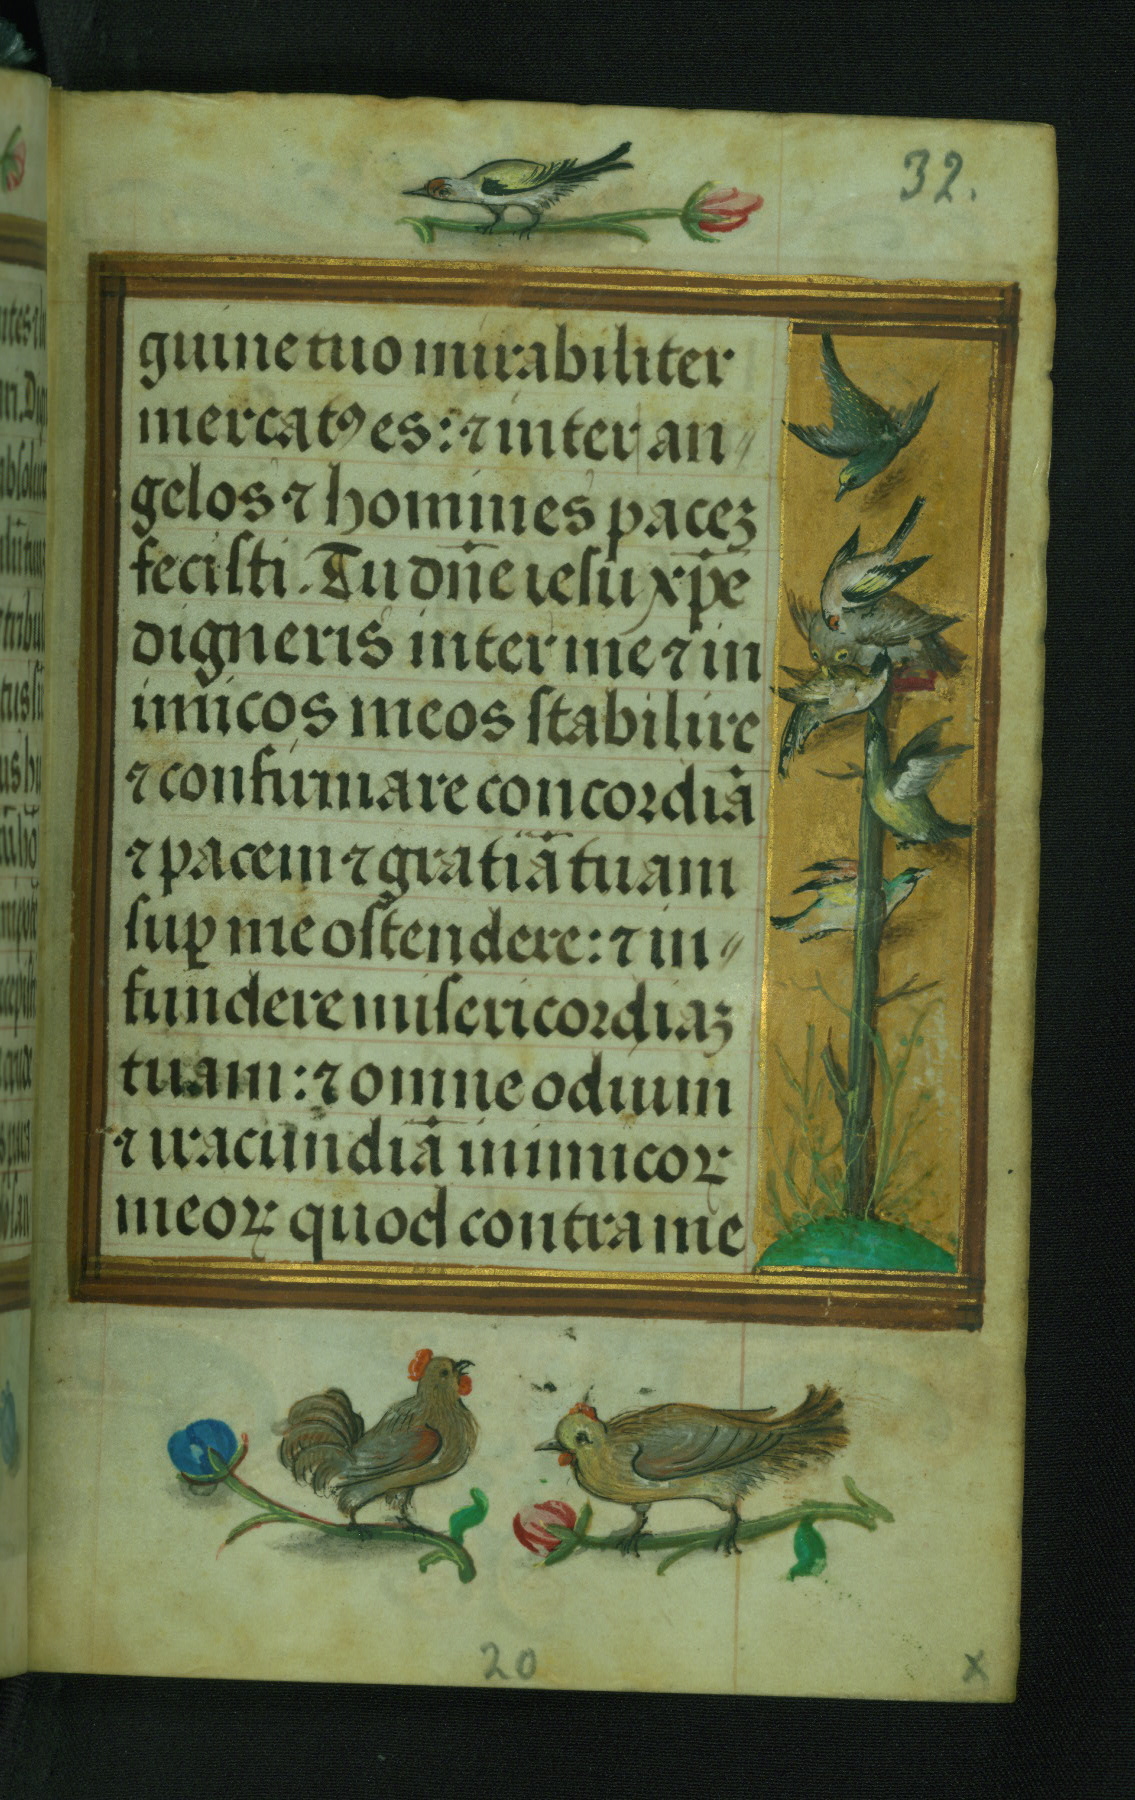 32.
guine tuo mirabiliter
mercatꝰ es: ⁊ inter an〃
gelos ⁊ homines paceꝫ
fecisti. Tu dn̄e iesu xp̄e
digneris inter me ⁊ in
imicos meos stabilire
⁊ confirmare concordiā
⁊ pacem ⁊ gratiā tuam
suꝑ me ostendere: ⁊ in〃
fundere misericordiaꝫ
tuam: ⁊ omne odium
⁊ iracundiā inimicoꝝ
meoꝝ quod contra me
20
x